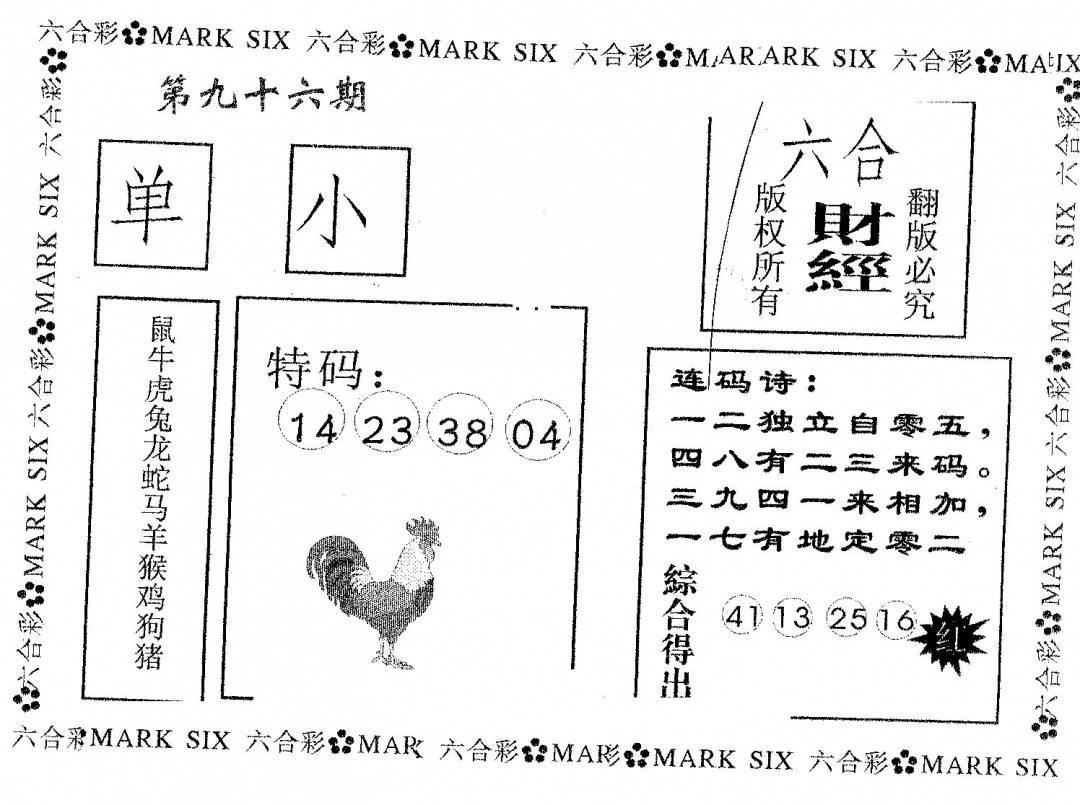 六合彩 MARK SIX 六合彩 MARK SIX 六合彩 MAR ARK SIX 六合彩 MA IX
第九十六期
单
小
六合
財經
版权所有
翻版必究
鼠牛虎兔龙蛇马羊猴鸡狗猪
特码:
14 23 38 04
连码诗:
一二独立自零五,
四八有二三来码。
三九四一来相加,
一七有地定零二
綜合得出
41 13 25 16
红
六合彩 MARK SIX 六合彩 MARK SIX 六合彩
六合彩 MARK SIX 六合彩 MARK SIX 六合彩
六合彩 MARK SIX 六合彩 MAR 六合彩 MAR MARK SIX 六合彩 MARK SIX